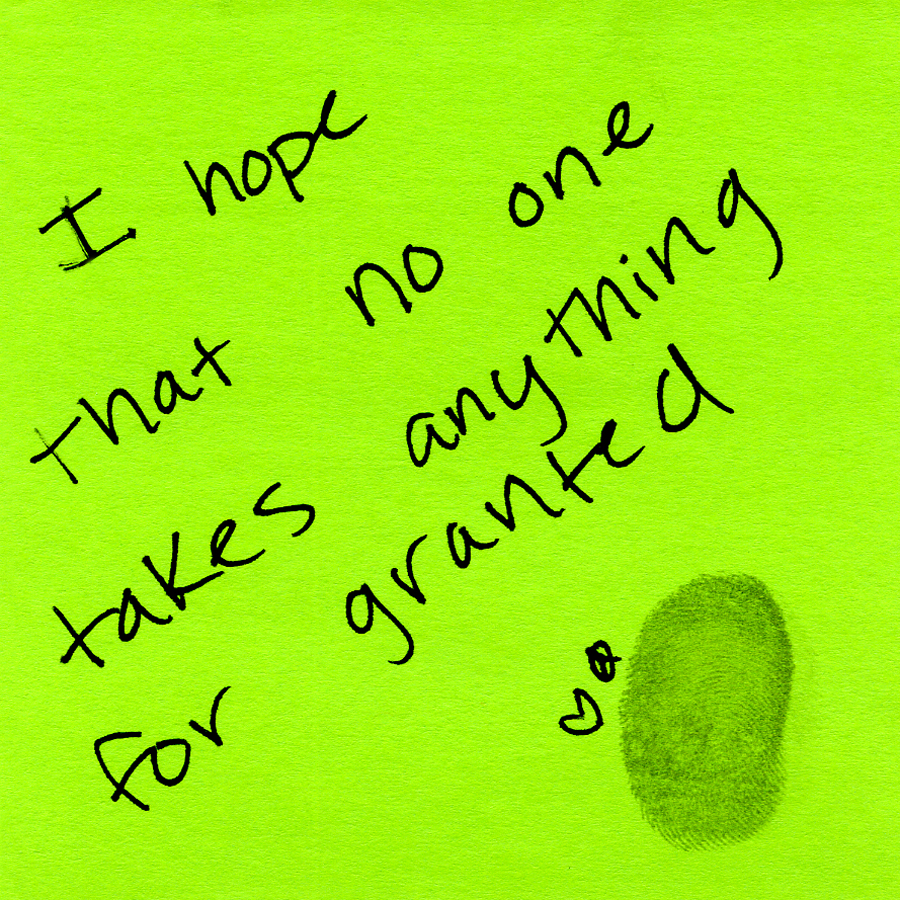 I hope
that no one
takes anything
for granted